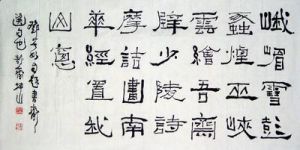 峨嵋雪彭
蠡煙巫峽
雲繪吾齋
壁少陵詩
摩詰畫南
華經置我
山窗